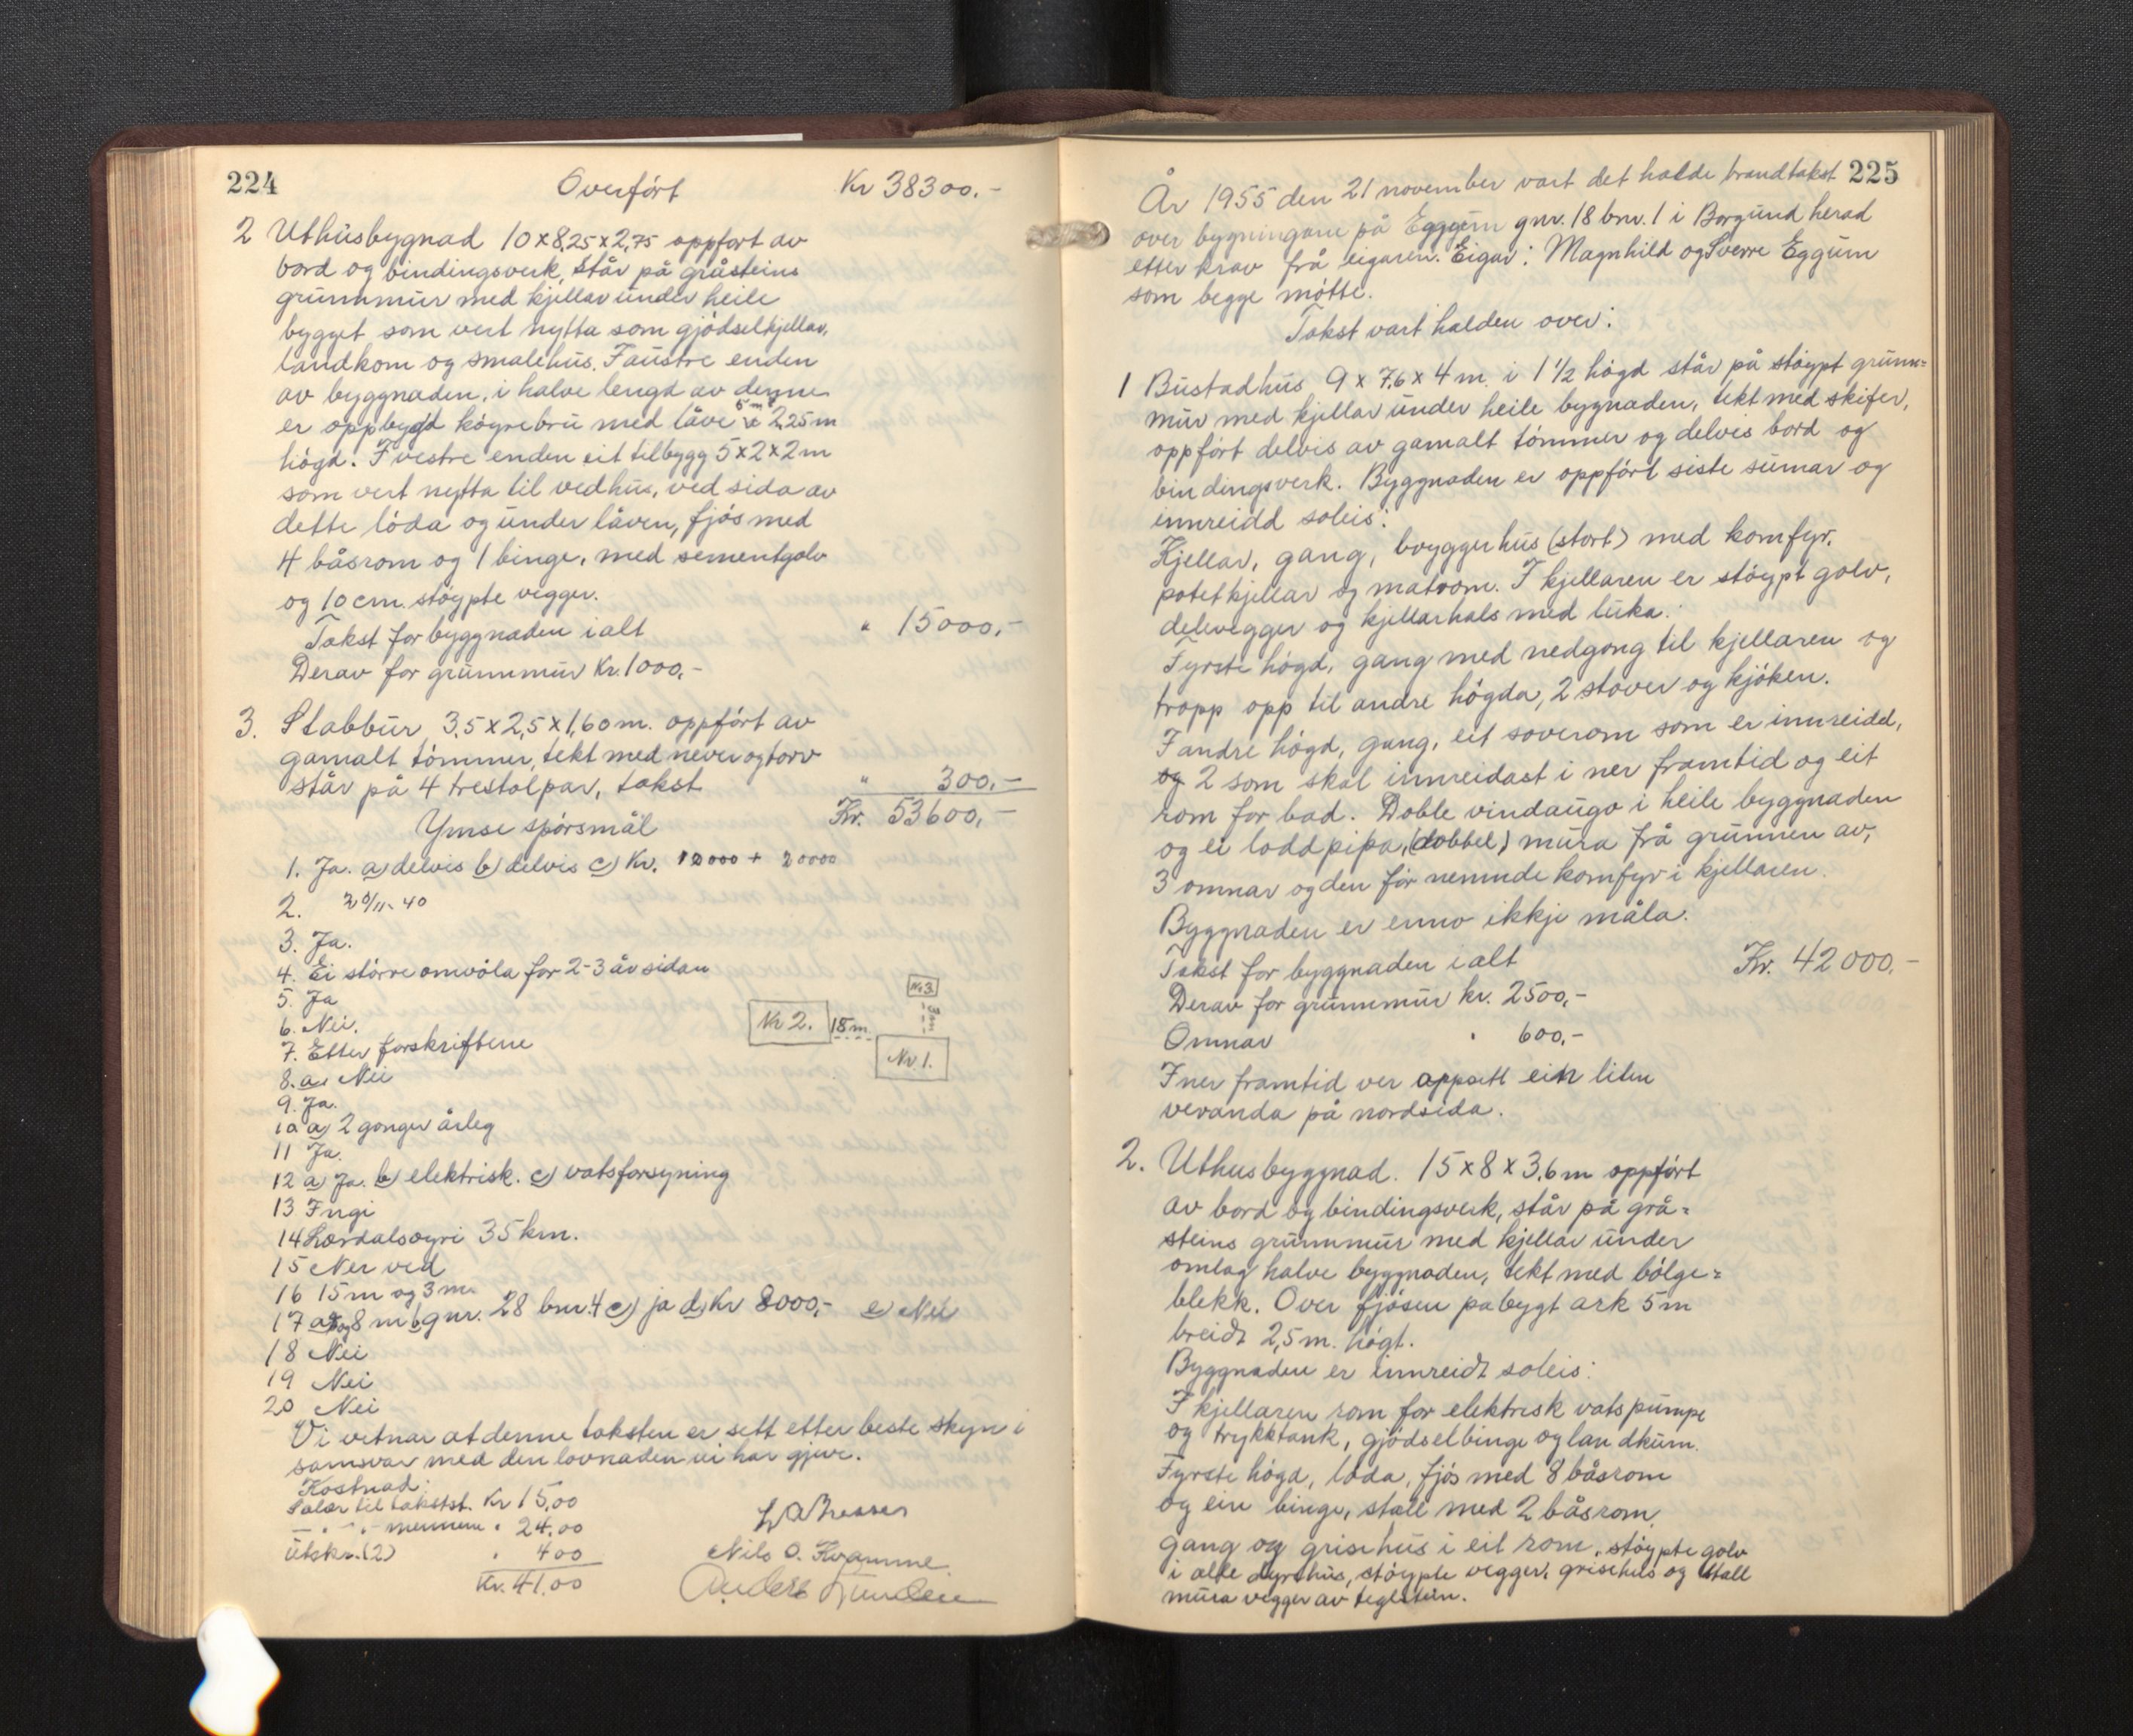 224
Overført Kr 38300.-
2 Uthusbygnad 10x8,25x2,75 oppført av
bord og bindingsverk, står på gråsteins
grunnmur med kjellar under heile
bygget som vert nytta som gjødselkjellar,
landkom og smalehus. I austre enden
av byggnaden, i halve lengd av denne
er oppbygd køyrebru med låve 5 m x 2,25 m
høgd. I vestre enden eit tilbygg 5x2x2 m
som vert nytta til vedhus, ved sida av
dette löda og under låven, fjøs med
4 båsrom og 1 binge, med sementgolv
og 10 cm. støypte vegger.
Takst for byggnaden ialt " 15000,-
Derav for grunnmur Kr. 1000,-
3. Stabbur 3,5x2,5x1,60 m. oppført av
gamalt tømmer, tekt med never og torv
står på 4 trestolpar, takst " 300,-
Kr. 53600,-
Ymse spørsmål
1. Ja. a) delvis b) delvis c) Kr. 12000 + 20000
2. 30/11-40
3. Ja.
4. Ei større omvøla for 2-3 år sidan
5. Ja
6. Nei.
7. Etter forskriftene
8. a. Nei
9. Ja.
10 a) 2 gonger årleg
11 Ja.
12 a) Ja. b) elektrisk. c) vatsforsyning
13 Ingi
14 Lærdalsøyri 35 km.
15 Ner ved
16 15 m og 3 m.
17 8 m b) gnr. 28 bnr. 4 c) ja d) Kr 8000,- e) Nei
18 Nei
19 Nei
20 Nei
Nr. 3.
3 m
Nr 2. 15 m.
Nr. 1.
Vi vitnar at denne taksten er sett etter beste skyn i
samsvar med den lovnaden vi har gjeve.
Kostnad:
Salær til takstst. Kr 15,00
— " — mennene " 24,00
Utskr. (2) " 4 00
Kr. 41,00
Nils O. Kvamme
225
År 1955 den 21 november vart det halde brandtakst
over bygningane på Eggum gnr. 18 bnr. 1 i Borgund herad
etter krav frå eigaren. Eigar: Magnhild og Sverre Eggum
som begge møtte.
Takst vart halden over:
1 Bustadhus 9 x 7,6 x 4 m. i 1 1/2 høgd står på støypt grunn=
mur med kjellar under heile bygnaden, tekt med skifer,
oppført delvis av gamalt tømmer og delvis bord og
bindingsverk. Byggnaden er oppført siste sumar og
innreidd soleis:
Kjellar, gang, bryggerhus (stort) med komfyr,
potetkjellar og matrom. I kjellaren er støypt golv,
delevegger og kjellarhals med luka.
Fyrste høgd, gang med nedgong til kjellaren og
tropp opp til andre høgda, 2 stover og kjøken.
I andre høgd, gang, eit soverom som er innreidd,
og 2 som skal innreidast i ner framtid og eit
rom for bad. Doble vindaugo i heile byggnaden
og ei loddpipa, (dobbel) mura frå grunnen av,
3 omnar og den før nemnde komfyr i kjellaren.
Byggnaden er enno ikkje måla.
Takst for byggnaden ialt Kr. 42000,-
Derav for grunnmur kr. 2500,-
Omnar " 600,-
I ner framtid ver oppsett ein liten
veranda på nordsida.
2. Uthusbyggnad. 15x8x3,6 m oppført
av bord og bindingsverk, står på grå=
steins grunnmur med kjellar under
omlag halve byggnaden, tekt med bølge=
blekk. Over fjøsen påbygt ark 5 m
breidt 2,5 m. høgt.
Byggnaden er innreidt soleis:
I kjellaren rom for elektrisk vatspumpe
og trykktank, gjødselbinge og landkum.
Fyrste høgd, løda, fjøs med 8 båsrom
og ein binge, stall med 2 båsrom,
gang og grisehus i eit rom, støypte golv
i alle dyrehus, støypte vegger, grisehus og stall
mura vegger av teglstein.